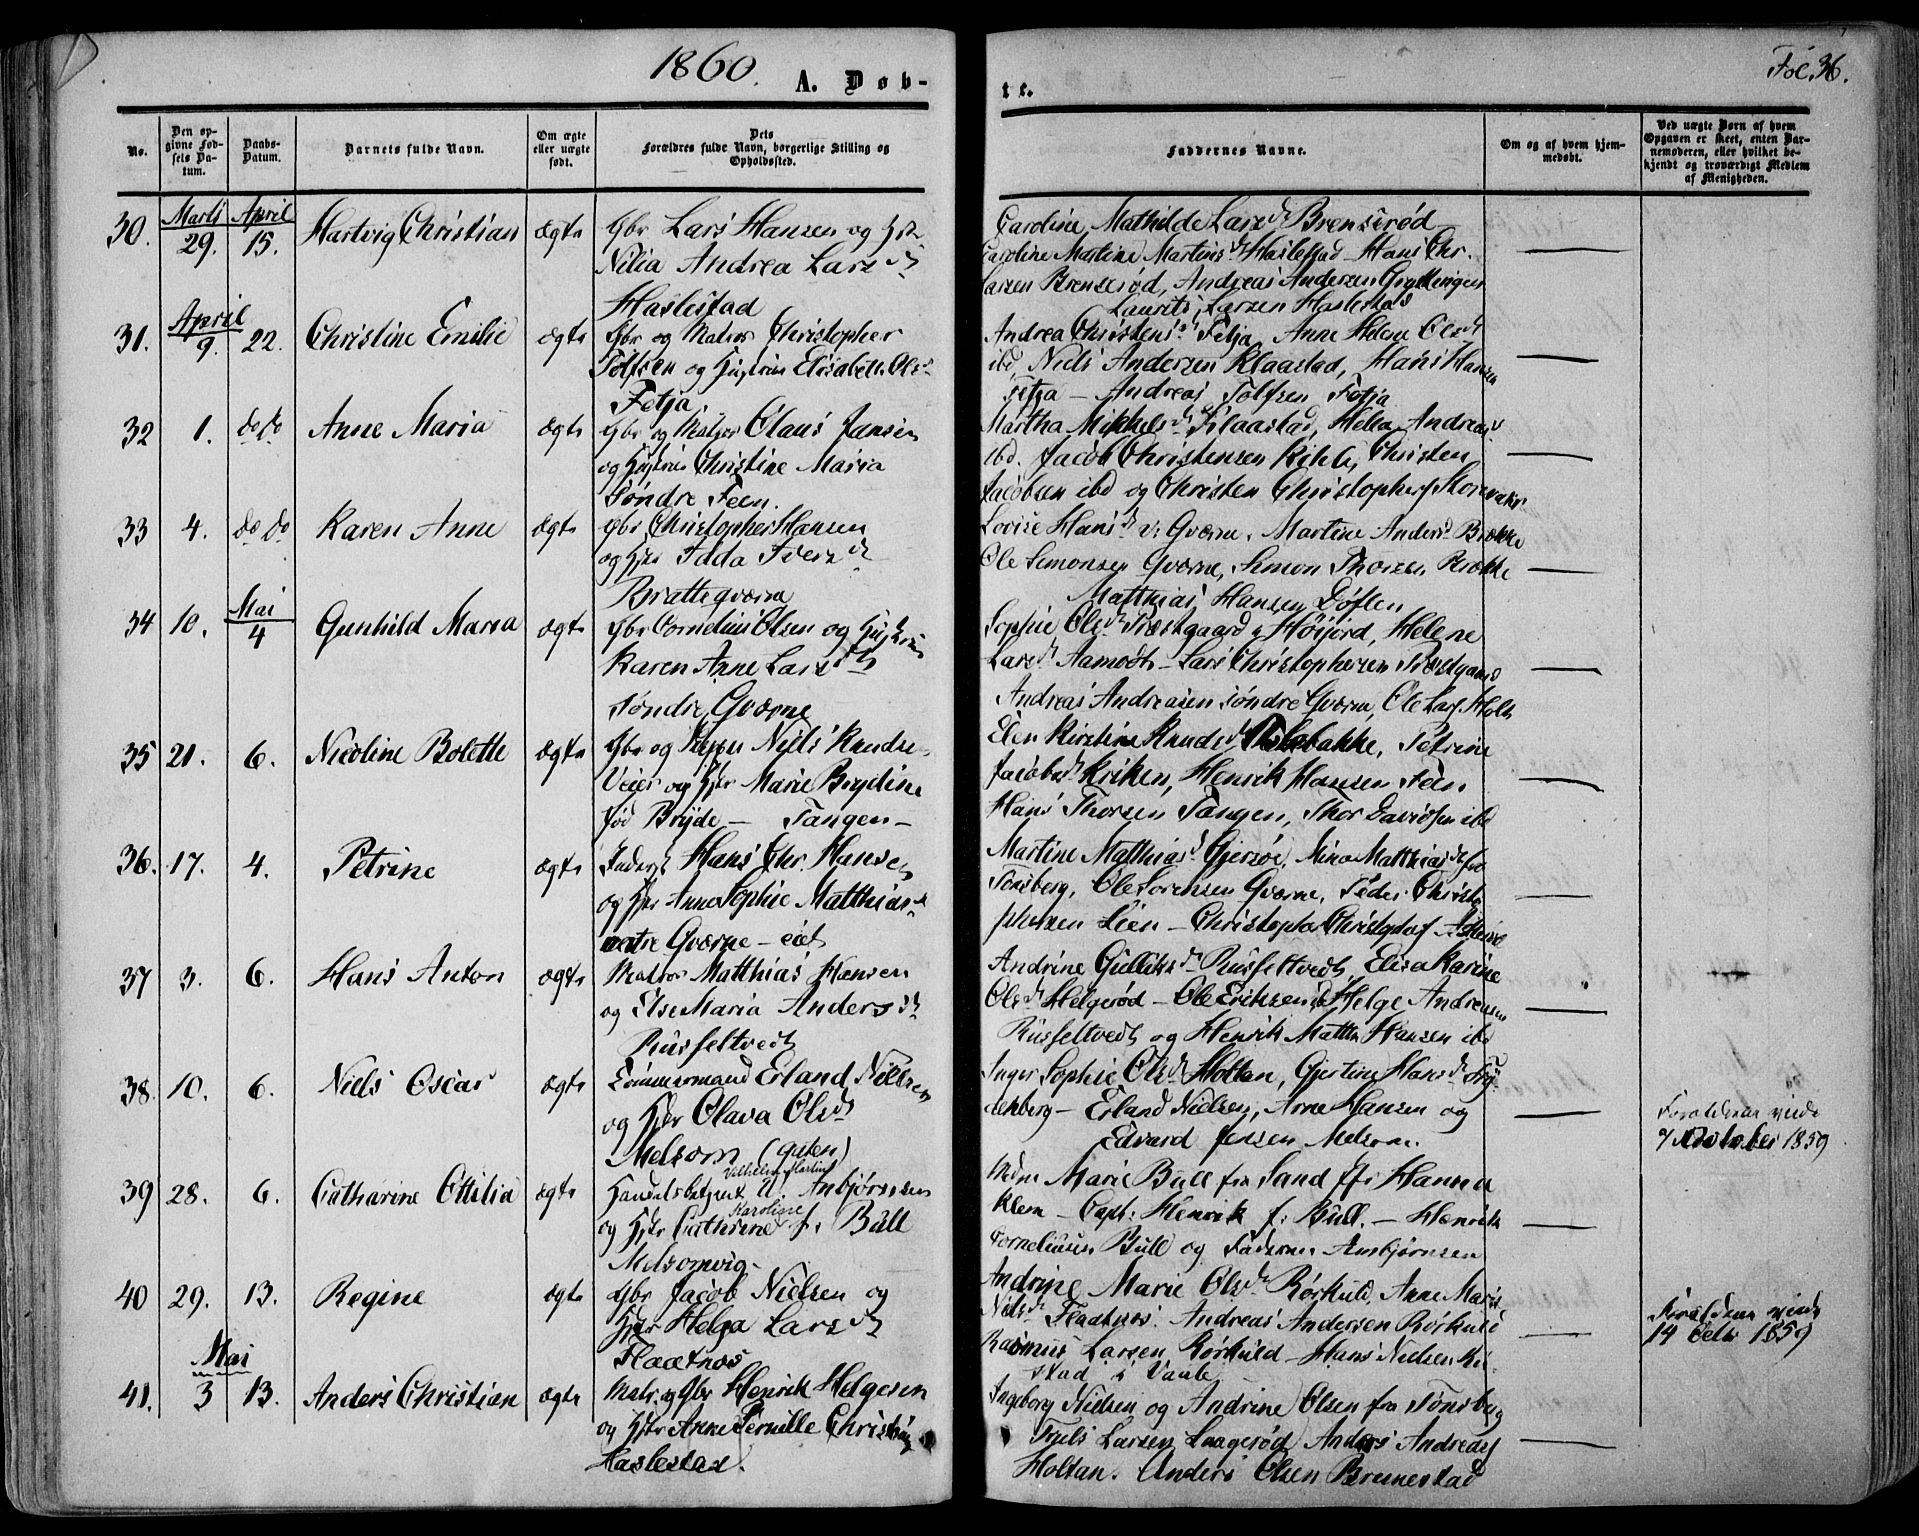 1860.
A. Døb-
te.
Fol. 36.
No.
Den op-
givne Fød-
sels Da-
tum.
Daabs-
Datum.
Barnets fulde Navn.
Om ægte
eller uægte
født.
Dets
Forældres fulde Navn, borgerlige Stilling og
Opholdssted.
Faddernes Navne.
Om og af hvem hjem-
medøbt.
Ved uægte Børn af hvem
Opgaven er skeet, enten Bar-
nemoderen, eller hvilket be-
kjendt og troværdigt Medlem
af Menigheden.
Marts April
30. 29. 15. Hartvig Christian ægte Gbr Lars Hansen og
Nilia Andrea Larsd
Haslestad
Caroline Mathilde Larsd Brenserød
Caroline Martine Martinsd Haslestad - Hans Chr.
Larsen Brenserød, Andreas Andersen
Laurits Larsen Haslestad
April
31. 9. 22. Christine Emilie ægte Gbr og Matros Christopher
Tolfsen og Hustrue Elisabeth Ols
Fetja
Andrea Christensd Fetja, Anne Helene Olsd
ibd, Niels Andersen Klaastad, Hans Hansen
Fetja - Andreas Tolfsen Fetja
32 1. do do Anne Maria ægte Gbr og Matros Claus Jansen
og Hustrue Christine Maria
Søndre Feen.
Martha Mikkelsd Klaastad, Helia Andreasd
ibd. Jacob Christensen Kihle, Christen
Jacobsen ibd og Christen Christophers Storevar
33 4. do do Karen Anne ægte Gbr Christopher Hansen
og Hstr Idda Iversd
Brattegværne
Lovise Hansd v: Gværne. Martine Andersd Brække
Ole Simonsen Gværne, Simon Thorsen Brække
Matthias Hansen Døflen
Mai
34 10. 4 Gunhild Maria ægte Gbr Cornelius Olsen og Hustrue
Karen Anne Larsd
Søndre Gværne
Sophie Olsd Præstgaard i Høijord, Helene
Larsd Aamodt - Lars Christophersen Præstgaard
Andreas Andreasen søndre Gværne, Ole Lars Holt
35 21. 6. Nicoline Bolette ægte Gbr og Skipper Niels Knudse
Veier og Hstr Marie Brydine
fød Bryde - Tangen -
Elen Kirstine Knudsd, Petrine
Jacobsd Kriken, Henrik Hansen Feen
Hans Thorsen Tangen, Thor Davidsen ibd
36. 17. 4. Petrine ægte Inderst Hans Chr. Hansen
og Hstr Anne Sophie Matthiasd
vestre Gværne - eiet
Martine Matthiasd Gjersøe, Mina Matthiasd fra
Tønsberg, Ole Sørensen Gværne, Peder Christo
phersen Lien - Christopher Christophers
37 3. 6. Hans Anton ægte Matros Matthias Hansen
og Else Maria Andersd
Russeltvedt
Andrine Gulliksd Russeltvedt, Elisa Karine
Olsd Helgerød - Ole Eriksen Helge Andreasen
Russeltvedt og Henrik Matth. Hansen ibd
38. 10. 6. Niels Oscar ægte Tømmermand Erland Nielsen
og Hstr Olava Olsd
Melsom (gisten)
Inger Sophie Olsd Holtan, Gjertine Hansd Fry
denberg - Erland Nielsen, Arne Hansen og
Edvard Jensen Melsom.
Forældrene viede
7 October 1859
39 28. 6. Catharine Ottilia ægte Vilhelm Martin
Handelsbetjent U. Anbjørnsen
Karoline
og Hstr Cathrine f. Bull
Melsomvig -
Mdm Marie Bull fra Sand Hanna
Klem - Capt: Henrik f: Bull. - Henrik
Corneliusen Bull og Faderen Anbjørnsen
40 29. 13. Regine ægte Gbr Jacob Nielsen og
Hstr Helga Larsd
Flaatnes
Andrine Marie Olsd Rørkuld, Anne Marie
Nielsd Flaatnes. Andreas Andersen Rørkuld
Rasmus Larsen Rørkuld - Hans Nielsen
stad i Vaale
Forældrene viede
14 1859
Mai
41. 3 13. Anders Christian ægte Matr. og Gbr Henrik Helgesen
og Hstr Anne Pernille Christ
Haslestad.
Ingeborg Nielsen og Andrine Olsen fra Tønsberg
Truls Larsen Laagerød, Anders Andreas
Holtan. Anders Olsen Brunestad